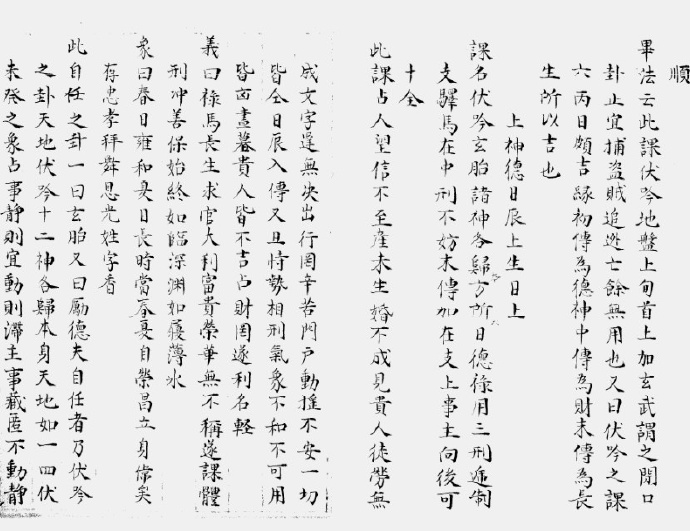 順
畢法云此課伏吟地盤上旬首上加玄武謂之閉口
卦止宜捕盜賊追逃亡餘無用也又曰伏吟之課
六丙日頗吉緣初傳為德神中傳為財末傳為長
生所以吉也
上神德日辰上生日上
課名伏吟玄胎諸神各歸方所日德祿用三刑遞制
支驛馬在中刑不妨末傳加在支上事主向後可
十全
此課占人望信不至產未生婚不成見貴人徒勞無
成文字遲無决出行罔辛苦門戶動搖不安一切
皆仝日辰入傳又丑恃勢相刑氣象不和不可用
皆凶晝暮貴人皆不吉占財罔遂利名輕
義曰祿馬長生求官大利富貴榮華無不稱遂課體
刑冲善保始終如臨深淵如履薄氷
象曰春日雍和夏日長時當辱憂自榮昌立身偹矣
存忠孝拜舞恩光姓字香
此自任之卦一曰玄胎又曰勵德夫自任者乃伏吟
之卦天地伏吟十二神各歸本身天地如一四伏
未發之象占事靜則宜動則滯主事藏匿不動靜